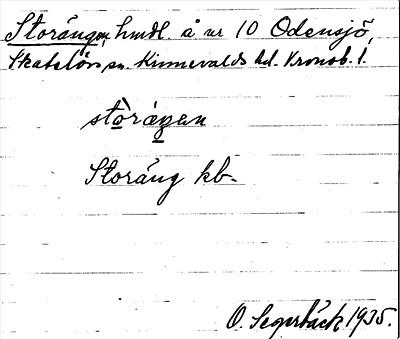 Storängen, hmdl. å nr 10 Odensjö,
Skatelövs sn. Kinnevalds hd. Kronob. l.
stòráŋen
Storäng kb-
O. Segerbäck 1935.